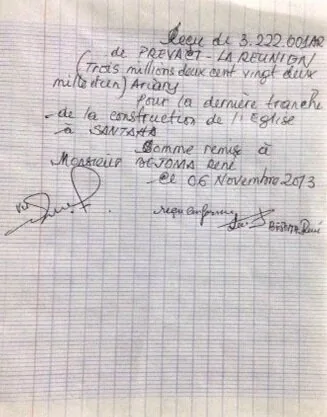 Reçu de 3.222.001AR
de PREVACT - LA REUNION
(Trois millions deux cent vingt deux
mille un) Ariary
pour la dernière tranche
de la construction de l'Eglise
à SANTAHA
Somme remise à
Monsieur BEJOMA René
Le 06 Novembre 2013
BEJOMA René